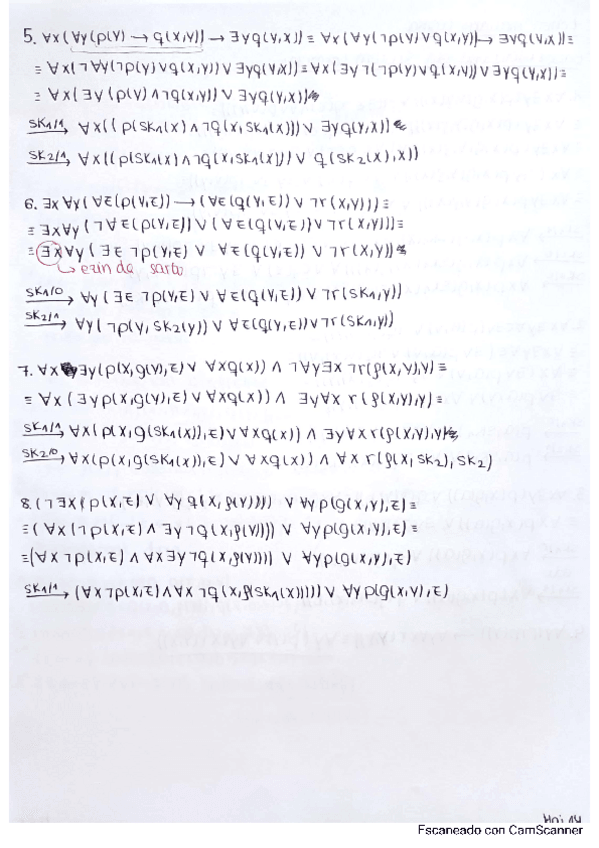 5. ∀x(∀y(p(y) → q(x,y)) → ∃yq(y,x)) ≡ ∀x(∀y(¬p(y)∨q(x,y)) → ∃yq(y,x)) ≡
≡ ∀x(¬∀y(¬p(y)∨q(x,y)) ∨ ∃yq(y,x)) ≡ ∀x(∃y¬(¬p(y)∨q(x,y)) ∨ ∃yq(y,x)) ≡
≡ ∀x(∃y(p(y)∧¬q(x,y)) ∨ ∃yq(y,x))
SK1/1→ ∀x((p(SK1(x)∧¬q(x,SK1(x))) ∨ ∃yq(y,x))
SK2/1→ ∀x((p(SK1(x)∧¬q(x,SK1(x))) ∨ q(SK2(x),x))
6. ∃x∀y(∀z(p(y,z)) → (∀z(q(y,z)) ∨ ¬r(x,y))) ≡
≡ ∃x∀y(¬∀z(p(y,z)) ∨ (∀z(q(y,z)) ∨ ¬r(x,y))) ≡
≡ ∃x∀y(∃z ¬p(y,z) ∨ ∀z(q(y,z)) ∨ ¬r(x,y))
→ ezin da sartu
SK1/0→ ∀y(∃z ¬p(y,z) ∨ ∀z(q(y,z)) ∨ ¬r(SK1,y))
SK2/1→ ∀y(¬p(y,SK2(y)) ∨ ∀z(q(y,z)) ∨ ¬r(SK1,y)
7. ∀x ∃y(p(x,g(y),z) ∨ ∀xq(x)) ∧ ¬∀y∃x ¬r(f(x,y),y) ≡
≡ ∀x(∃yp(x,g(y),z) ∨ ∀xq(x)) ∧ ∃y∀x r(f(x,y),y) ≡
SK1/1→ ∀x(p(x,g(SK1(x)),z) ∨ ∀xq(x)) ∧ ∃y∀x r(f(x,y),y)
SK2/0→ ∀x(p(x,g(SK1(x)),z) ∨ ∀xq(x)) ∧ ∀x r(f(x,SK2),SK2)
8. (¬∃x(p(x,z) ∨ ∀y q(x,f(y)))) ∨ ∀yp(g(x,y),z) ≡
≡ (∀x(¬p(x,z) ∨ ∃y¬q(x,f(y)))) ∨ ∀yp(g(x,y),z) ≡
≡ (∀x ¬p(x,z) ∨ ∀x∃y¬q(x,f(y)))) ∨ ∀yp(g(x,y),z)
SK1/1→ (∀x¬p(x,z) ∨ ∀x ¬q(x,f(SK1(x))))) ∨ ∀yp(g(x,y),z)
Escaneado con CamScanner